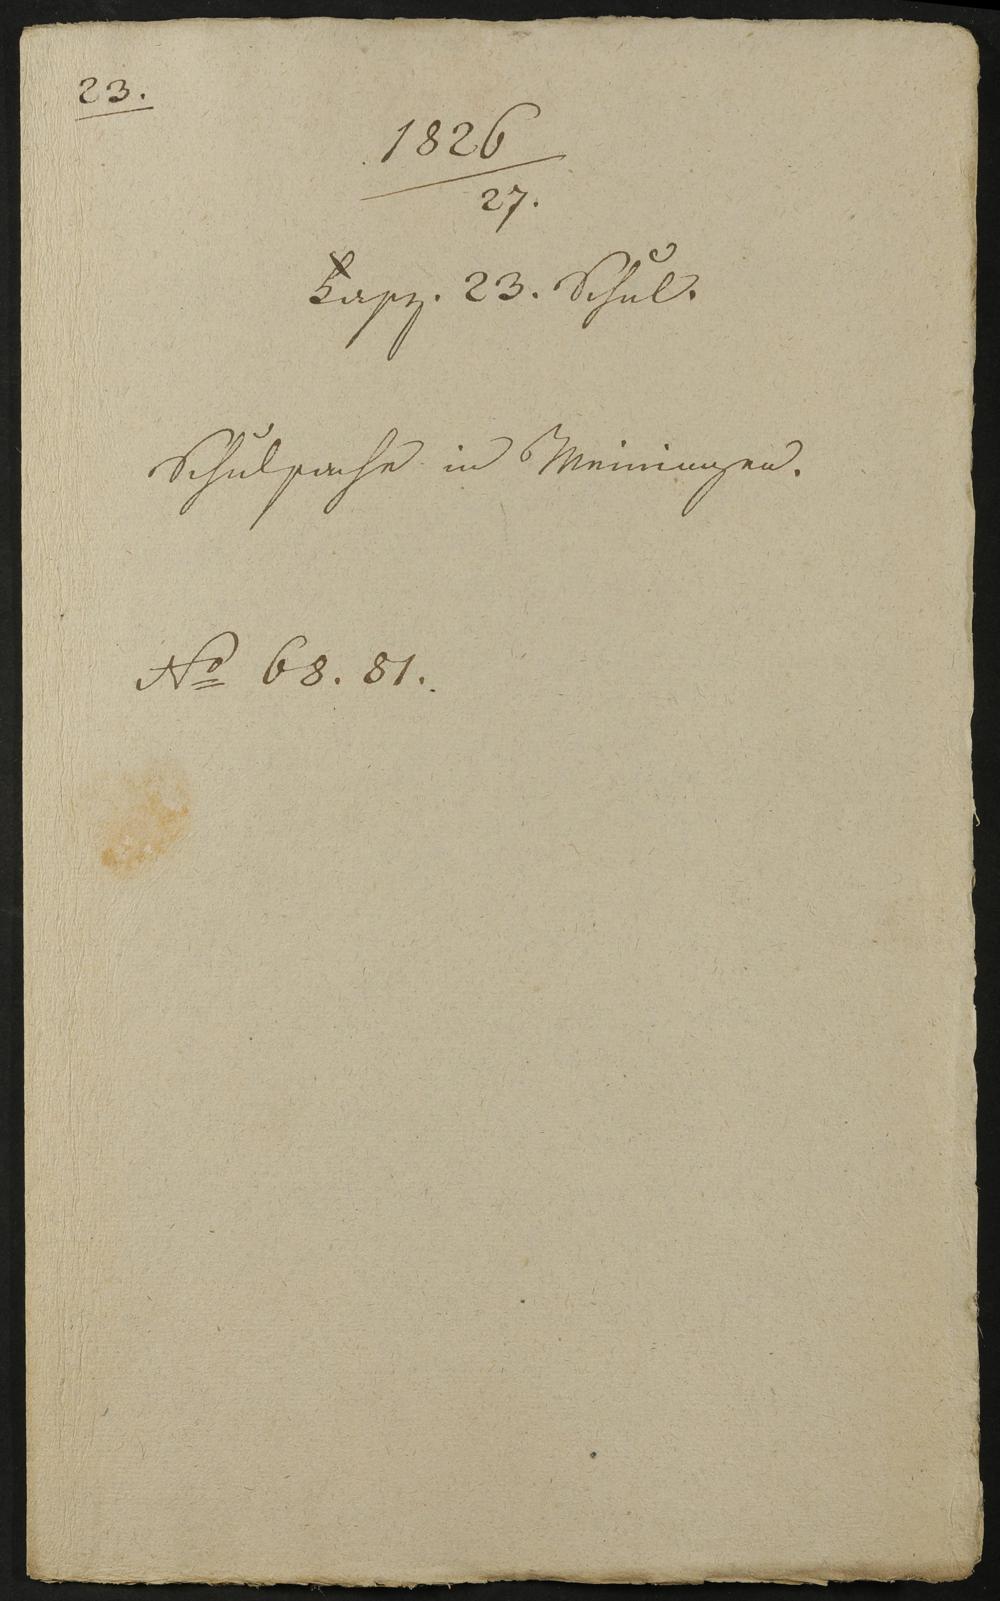 23.
1826
27.
Kapz. 23. Schul.
Schulsache in Meiningen.
No 68. 81.